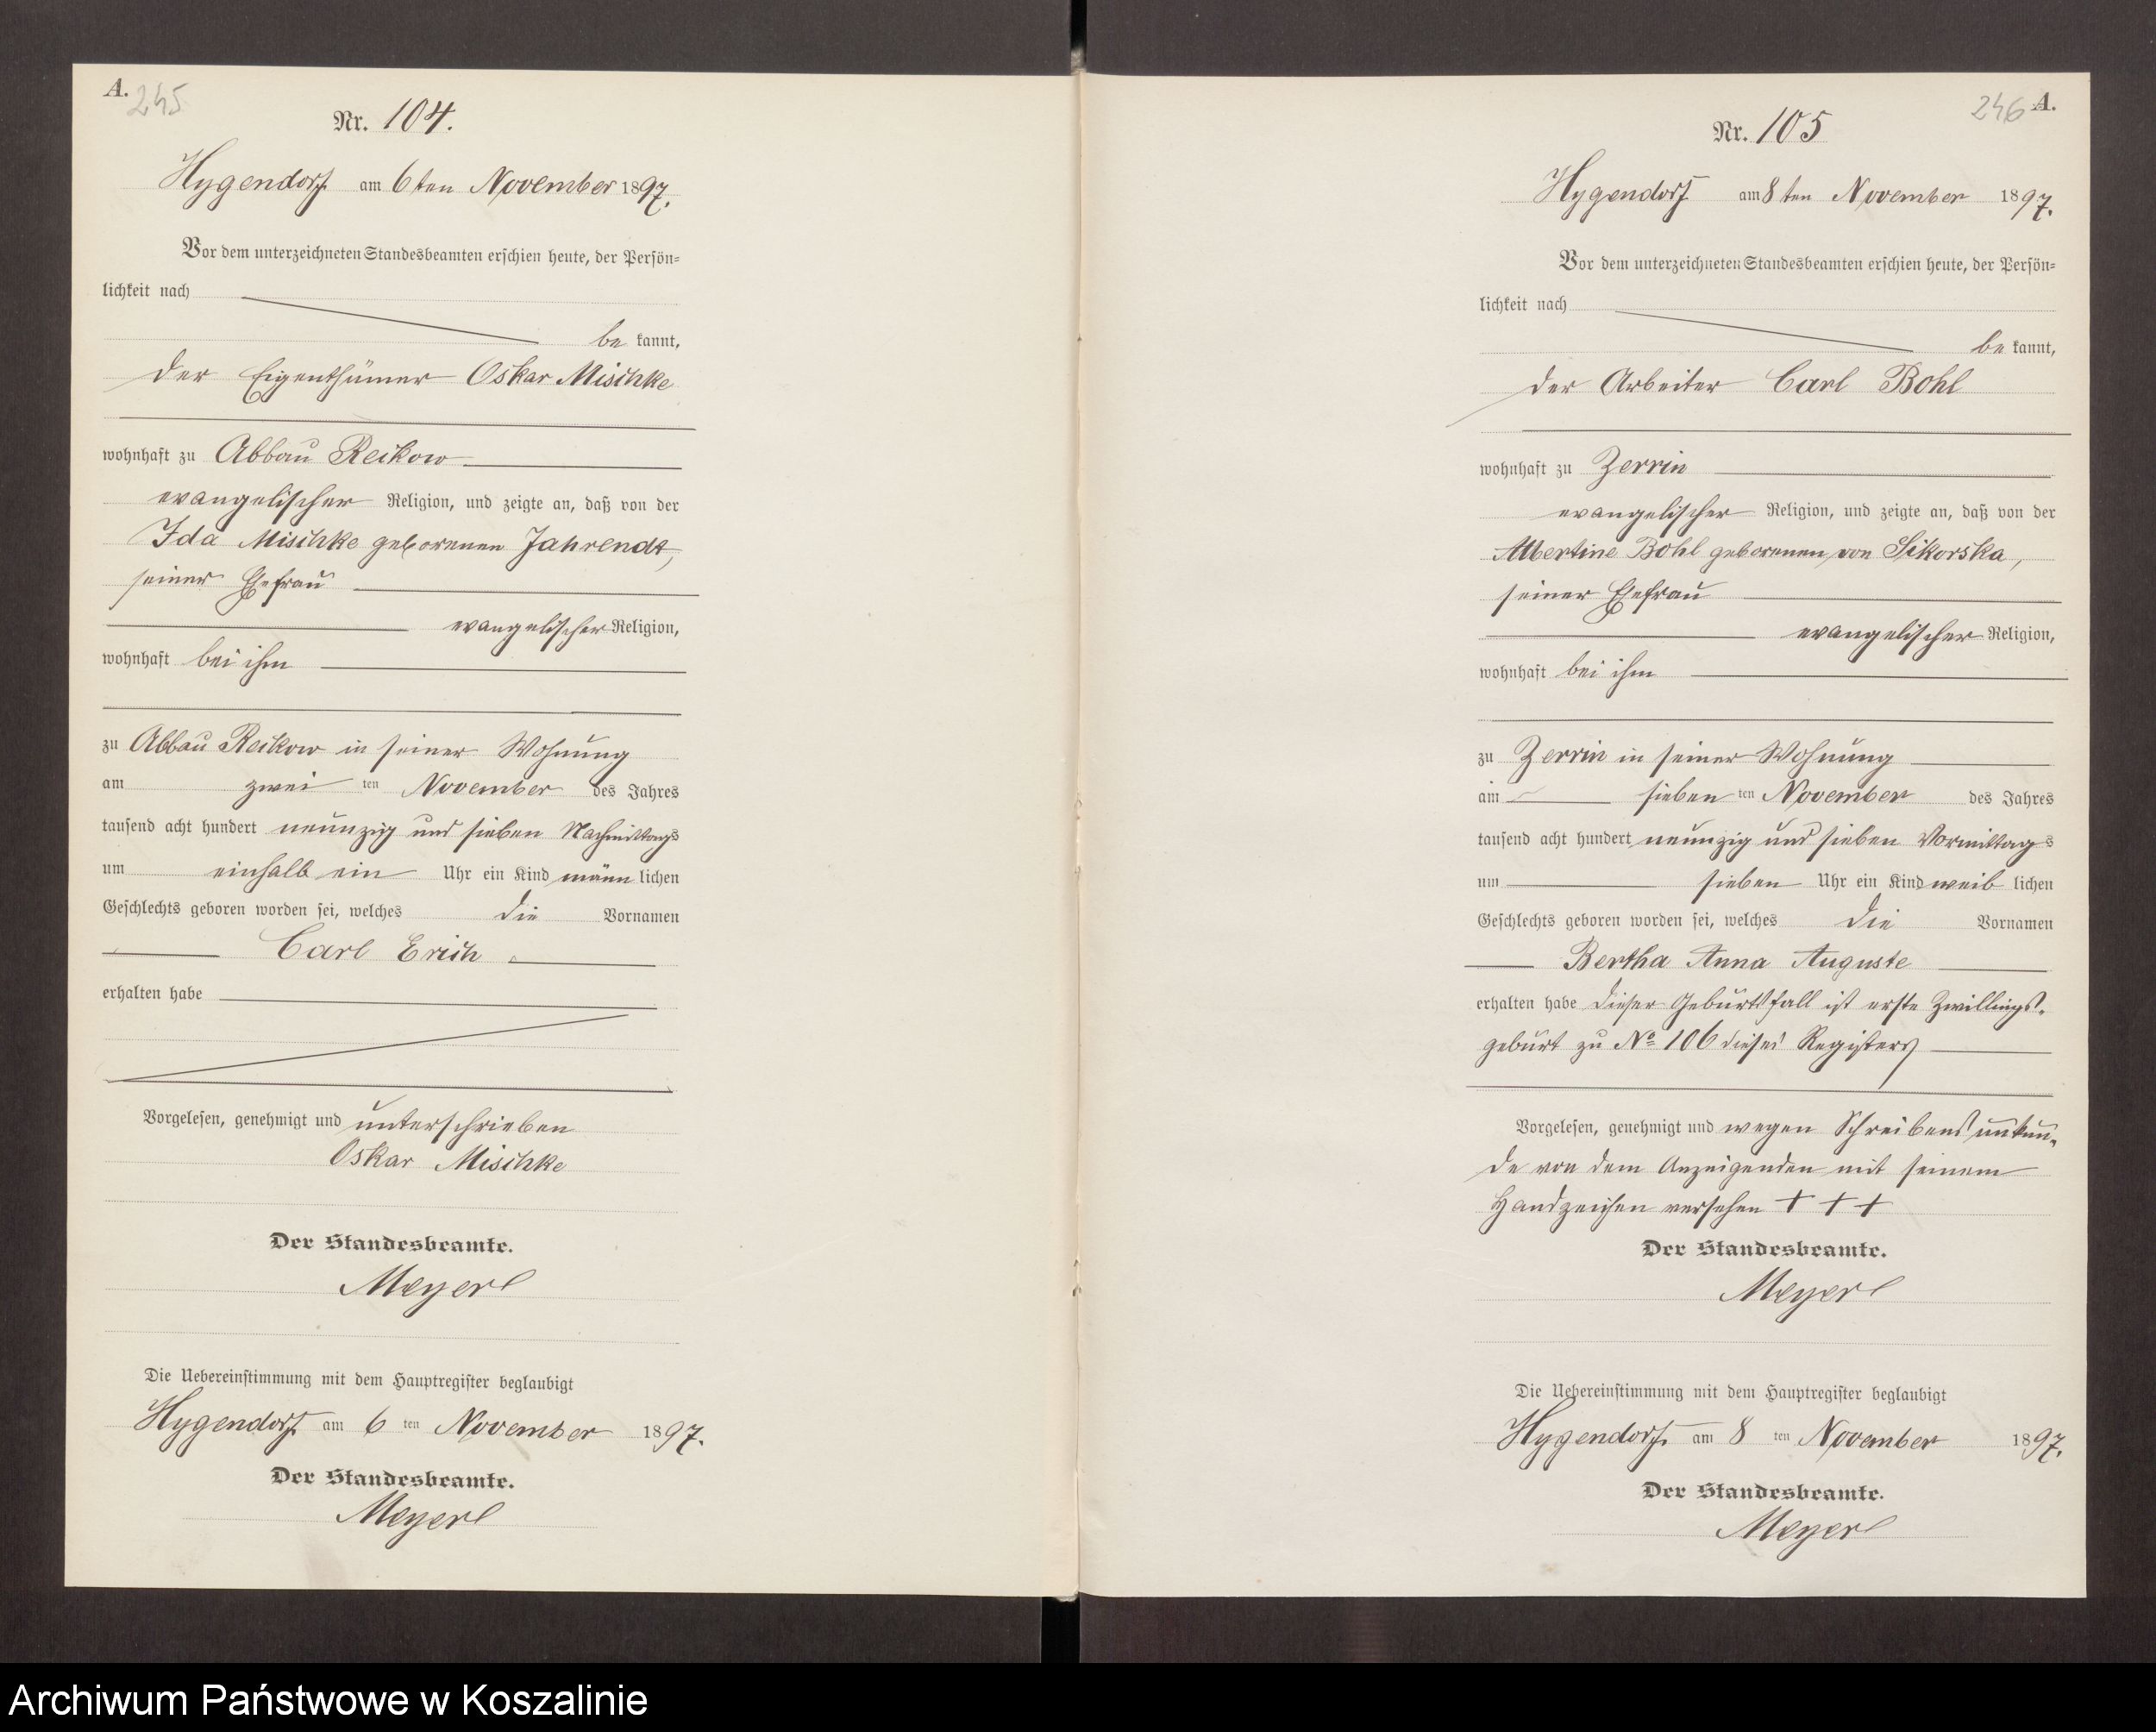 A.
245
Nr. 104.
Hygendorf am 6ten November 1897.
Vor dem unterzeichneten Standesbeamten erschien heute, der Persön-
lichkeit nach
be kannt,
der Eigenthümer Oskar Mischke
wohnhaft zu Abbau Reikow
evangelischer Religion, und zeigte an, daß von der
Ida Mischke geborenen Jahrendt,
seiner Ehefrau
evangelischer Religion,
wohnhaft bei ihm
zu Abbau Reikow in seiner Wohnung
am zwei ten November des Jahres
tausend acht hundert neunzig und sieben Nachmittags
um einhalb ein Uhr ein Kind männ lichen
Geschlechts geboren worden sei, welches die Vornamen
Carl Erich
erhalten habe
Vorgelesen, genehmigt und unterschrieben
Oskar Mischke
Der Standesbeamte.
Meyer
Die Uebereinstimmung mit dem Hauptregister beglaubigt
Hygendorf am 6 ten November 1897.
Der Standesbeamte.
Meyer
246 A.
Nr. 105
Hygendorf am 8 ten November 1897.
Vor dem unterzeichneten Standesbeamten erschien heute, der Persön-
lichkeit nach
be kannt,
der Arbeiter Carl Bohl
wohnhaft zu Zerrin
evangelischer Religion, und zeigte an, daß von der
Albertine Bohl geborenen von Sikorska,
seiner Ehefrau
evangelischer Religion,
wohnhaft bei ihm
zu Zerrin in seiner Wohnung
am sieben ten November des Jahres
tausend acht hundert neunzig und sieben Vormittags
um sieben Uhr ein Kind weib lichen
Geschlechts geboren worden sei, welches die Vornamen
Bertha Anna Auguste
erhalten habe dieser Geburtsfall ist erste Zwillings-
geburt zu No 106 dieses Registers
Vorgelesen, genehmigt und wegen Schreibensunkun-
de von dem Anzeigenden mit seinem
Handzeichen versehen + + +
Der Standesbeamte.
Meyer
Die Uebereinstimmung mit dem Hauptregister beglaubigt
Hygendorf am 8 ten November 1897.
Der Standesbeamte.
Meyer
Archiwum Państwowe w Koszalinie